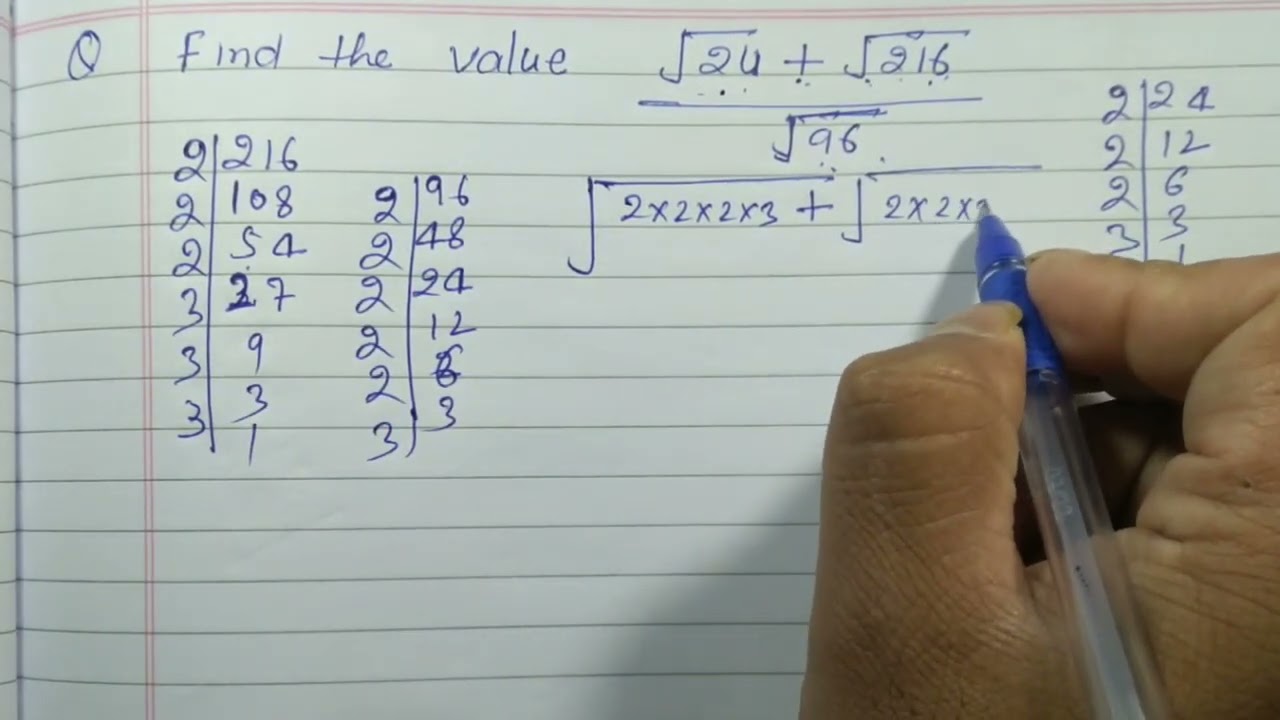 Q Find the value √24 + √216
√96
2 | 216
2 | 108
2 | 54
3 | 27
3 | 9
3 | 3
1
2 | 96
2 | 48
2 | 24
2 | 12
2 | 6
3 | 3
√2×2×2×3 + √2×2×
2 | 24
2 | 12
2 | 6
3 | 3
1